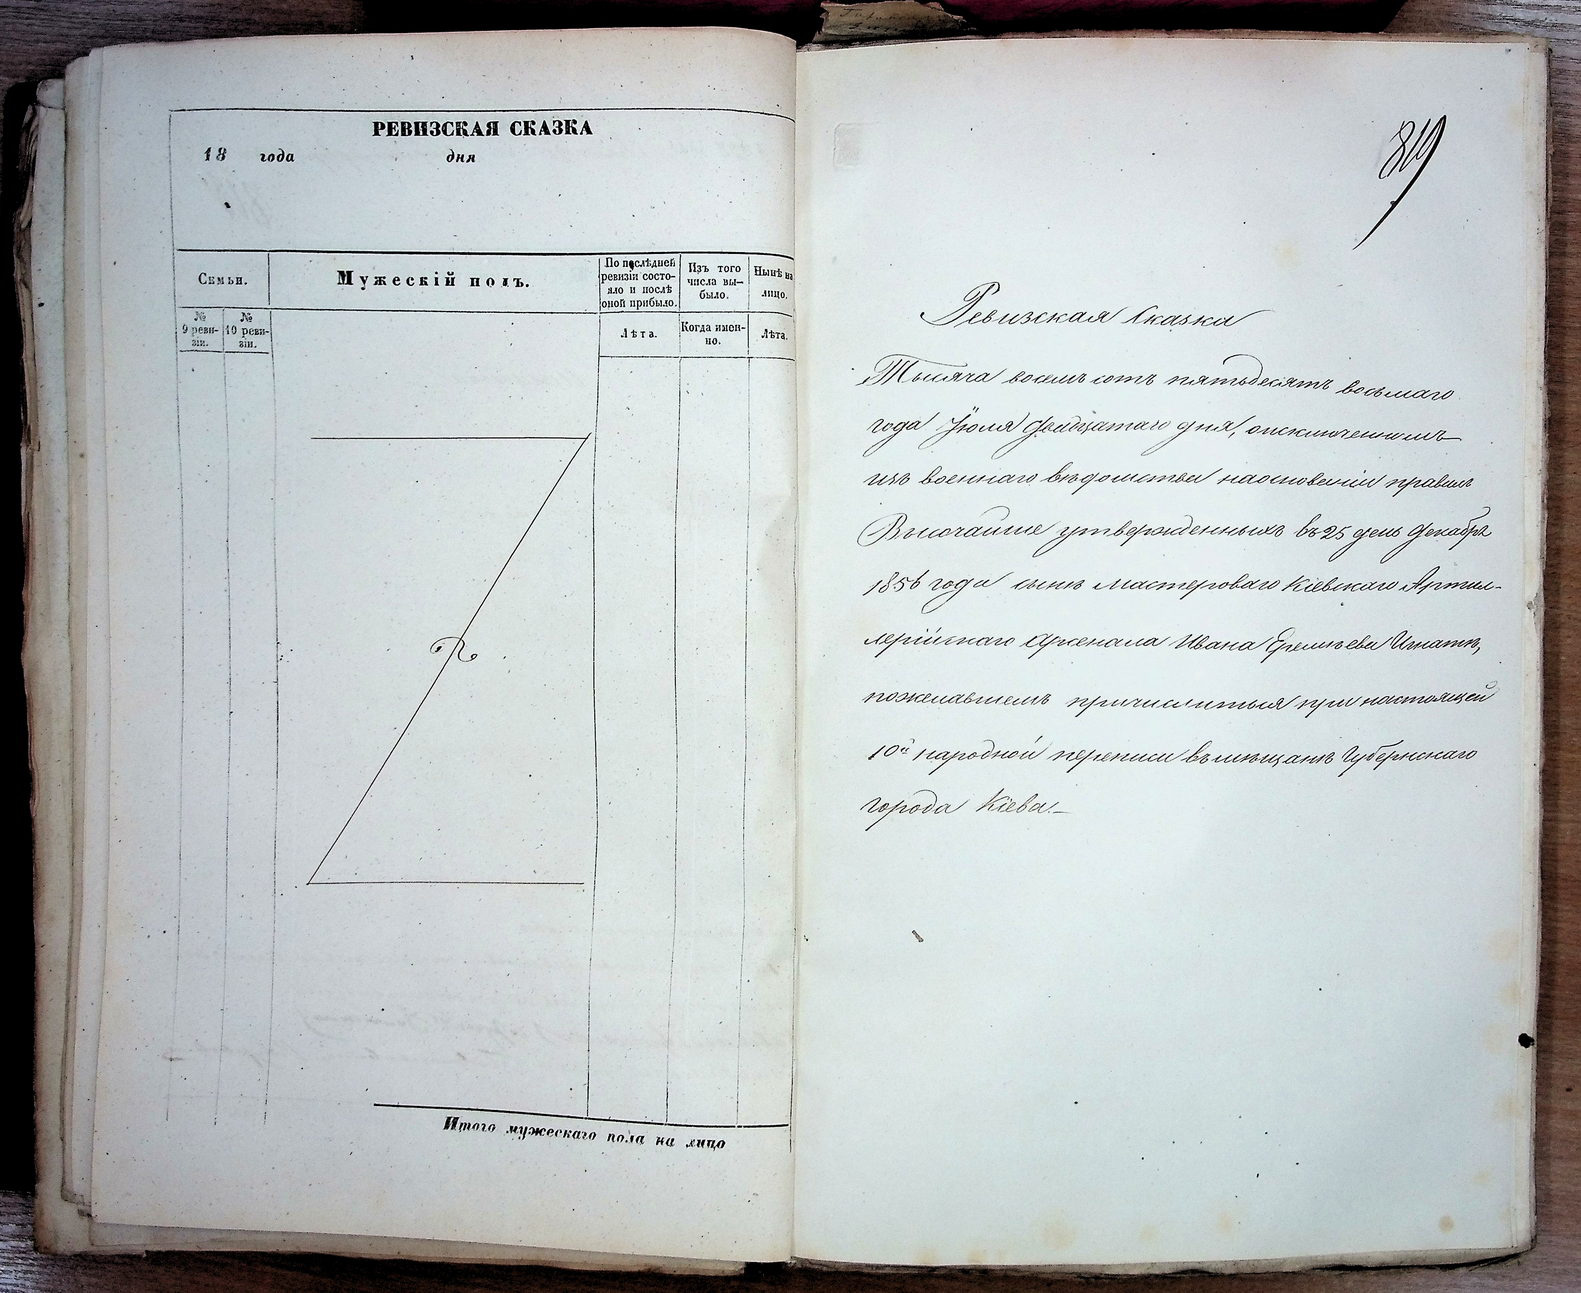 РЕВИЗСКАЯ СКАЗКА
18 года дня
Семьи.
Мужескій полъ.
По послѣдней ревизіи состояло и послѣ оной прибыло.
Изъ того числа выбыло.
Нынѣ на лицо.
№ 9 ревизіи.
№ 10 ревизіи.
Лѣта.
Когда именно.
Лѣта.
Итого мужескаго пола на лицо
819
Ревизская Сказка
Тысяча восемь сотъ пятьдесятъ восьмаго
года Іюля двадцатаго дня, о исключенномъ
изъ военнаго вѣдомства на основаніи правилъ
Высочайше утвержденныхъ въ 25 день Декабря
1856 года сынѣ мастероваго Кіевскаго Артил-
лерійскаго Арсенала Ивана Еремѣева Игнатѣ,
пожелавшемъ причислиться при настоящей
10й народной переписи въ мѣщанѣ Губернскаго
города Кіева.